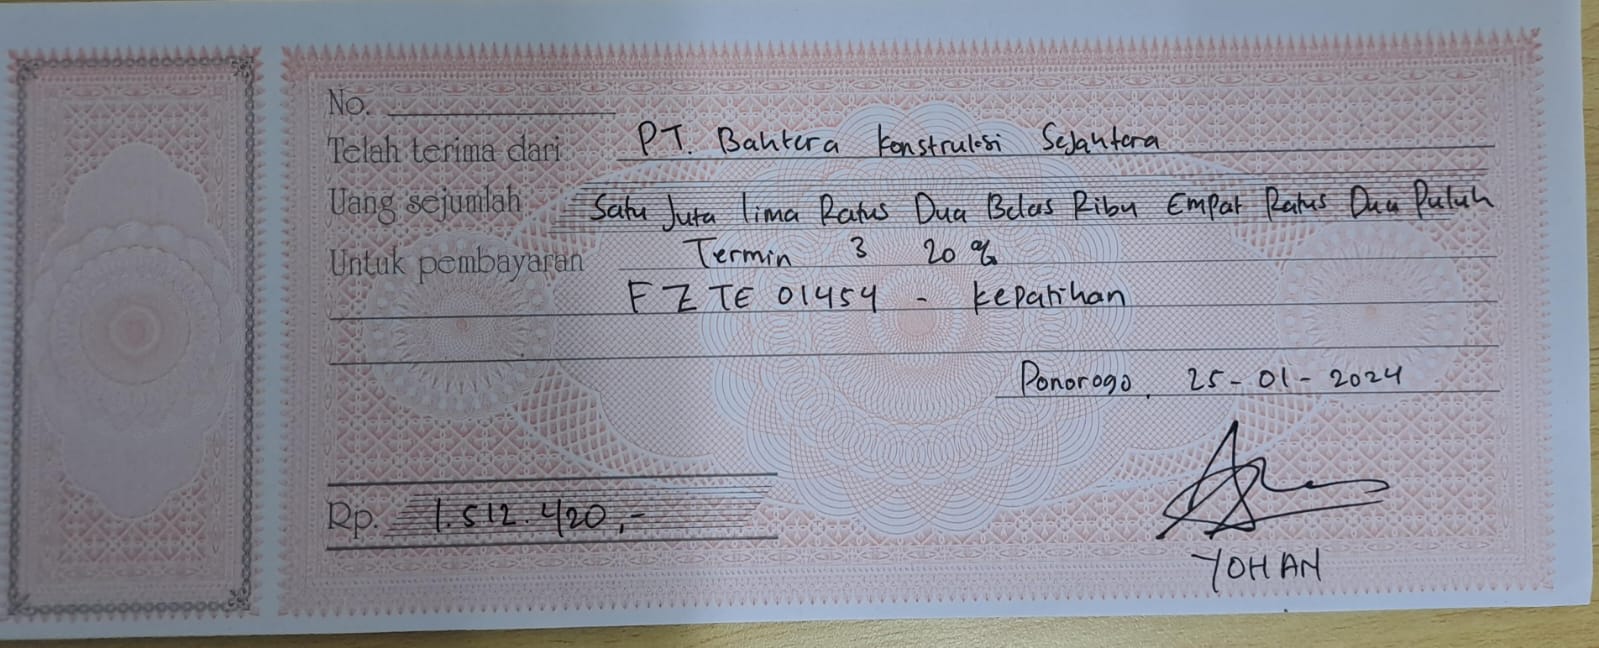 No.
Telah terima dari PT. Bahtera Konstruksi Sejahtera
Uang sejumlah Satu Juta lima Ratus Dua Belas Ribu Empat Ratus Dua Puluh
Untuk pembayaran Termin 3 20 %
FZTE 01454 - Kepatihan
Ponorogo, 25-01-2024
Rp. 1.512.420,-
YOHAN